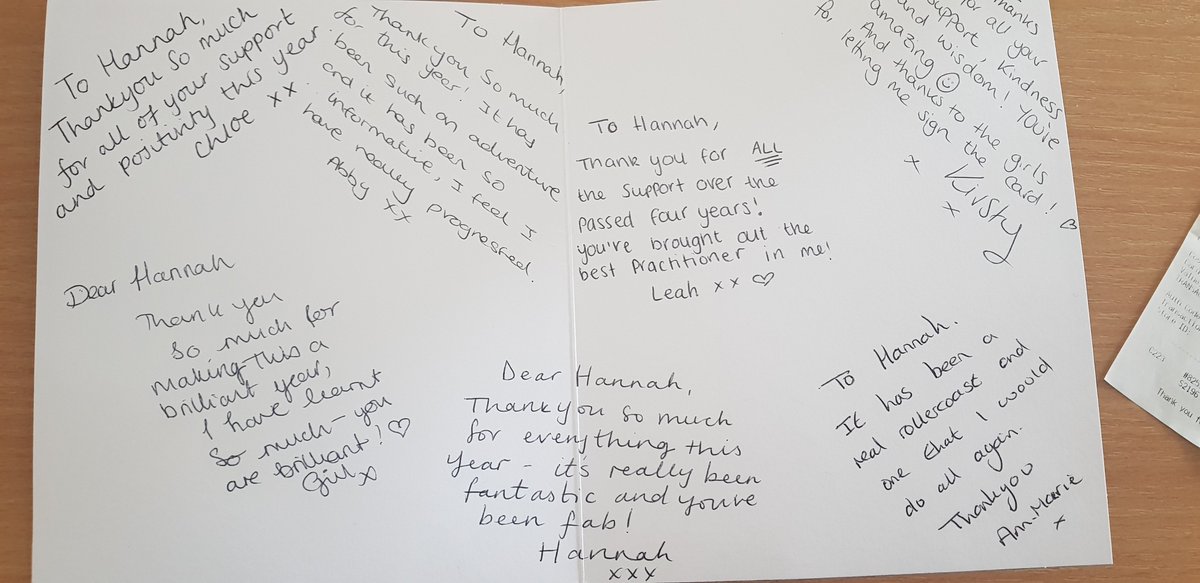 To Hannah,
Thankyou so much
for all of your support
and positivity this year.
Chloe xx
To Hannah,
Thankyou so much
for this year! It has
been such an adventure
and it has been so
informative, I feel I
have really progressed.
Abby xx
To Hannah,
Thank you for ALL
the support over the
passed four years!
you've brought out the
best Practitioner in me!
Leah xx ♡
thanks
for all your
support, kindness
and wisdom! You're
amazing ☺
And thanks to the girls
for letting me sign the card! ♡
x Kirsty
x
Dear Hannah
Thank you
so much for
making this a
brilliant year,
I have learnt
so much - you
are brilliant! ♡
Gill x
Dear Hannah,
Thank you so much
for everything this
year - it's really been
fantastic and you've
been fab!
Hannah
xxx
To Hannah.
It has been a
real rollercoast and
one that I would
do all again.
Thankyou
Ann-Marie
x
Thank you